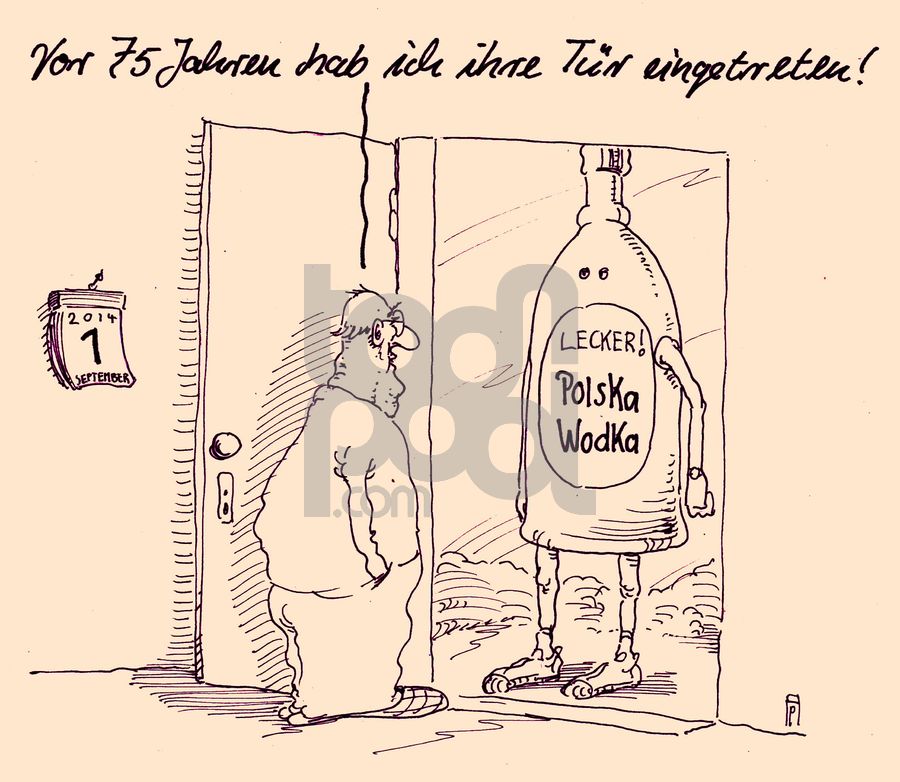 Vor 75 Jahren hab ich ihre Tür eingetreten!
2014
1
SEPTEMBER
LECKER!
Polska
Wodka
toon
pool
.com
P